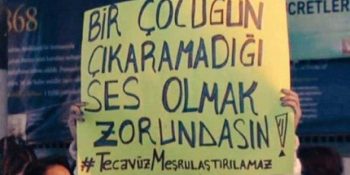 868
CRETLER
BİR ÇOCUĞUN
ÇIKARAMADIĞI
SES OLMAK
ZORUNDASIN!
#TecavüzMeşrulaştırılamaz